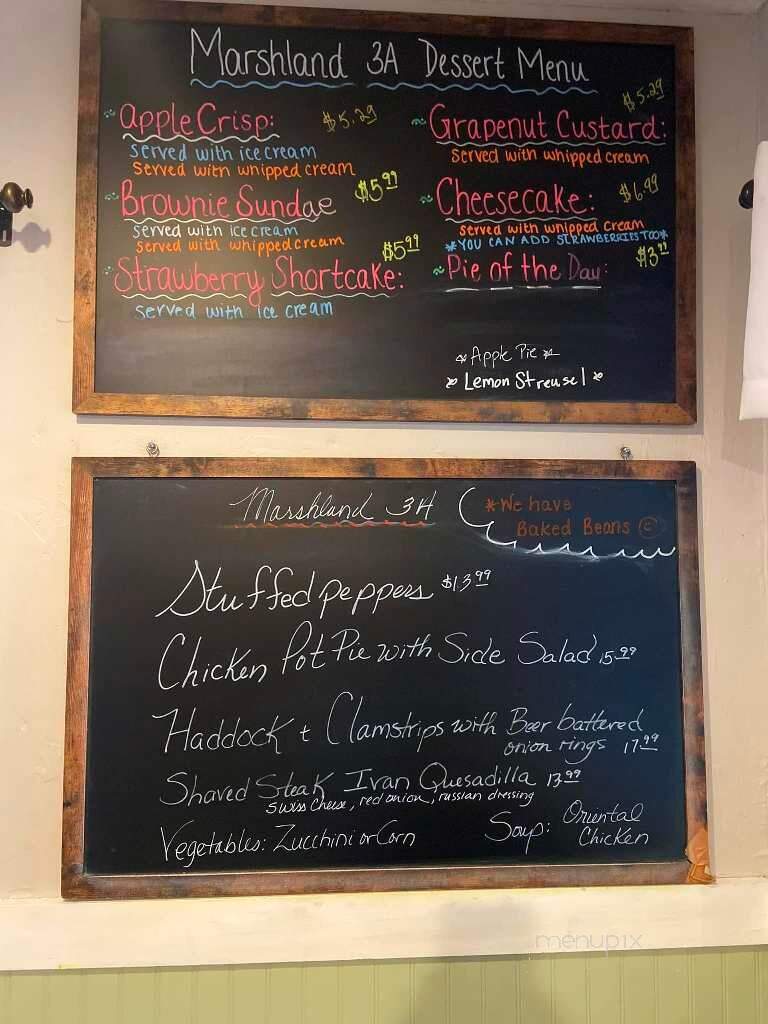 Marshland 3A Dessert Menu
Apple Crisp: $5.29
served with ice cream
served with whipped cream
Brownie Sundae $5.99
served with ice cream
served with whipped cream
Strawberry Shortcake: $5.99
served with ice cream
Grapenut Custard: $5.29
served with whipped cream
Cheesecake: $6.99
served with whipped cream
*YOU CAN ADD STRAWBERRIES TOO*
Pie of the Day: $3.99
Apple Pie
Lemon Streusel
Marshland 3A
*We have
Baked Beans
Stuffed peppers $13.99
Chicken Pot Pie with Side Salad 15.99
Haddock + Clamstrips with Beer battered
onion rings 17.99
Shaved Steak Ivan Quesadilla 13.99
swiss cheese, red onion, russian dressing
Vegetables: Zucchini or Corn
Soup: Oriental
Chicken
menupix